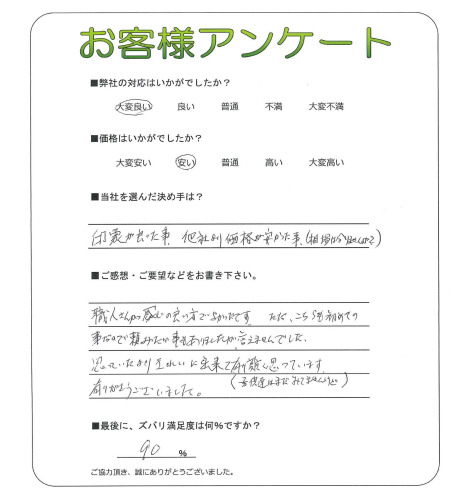 お客様アンケート
■弊社の対応はいかがでしたか？
大変良い 良い 普通 不満 大変不満
■価格はいかがでしたか？
大変安い 安い 普通 高い 大変高い
■当社を選んだ決め手は？
印象が良かった事 他社より価格が安かった事
■ご感想・ご要望などをお書き下さい。
職人さんも感じの良い方でよかったです ただ、こちらも初めての
事なので頼みたい事もありましたが言えませんでした。
思っていたよりきれいに出来て有り難く思っています
有りがとうございました。
■最後に、ズバリ満足度は何%ですか？
90 %
ご協力頂き、誠にありがとうございました。